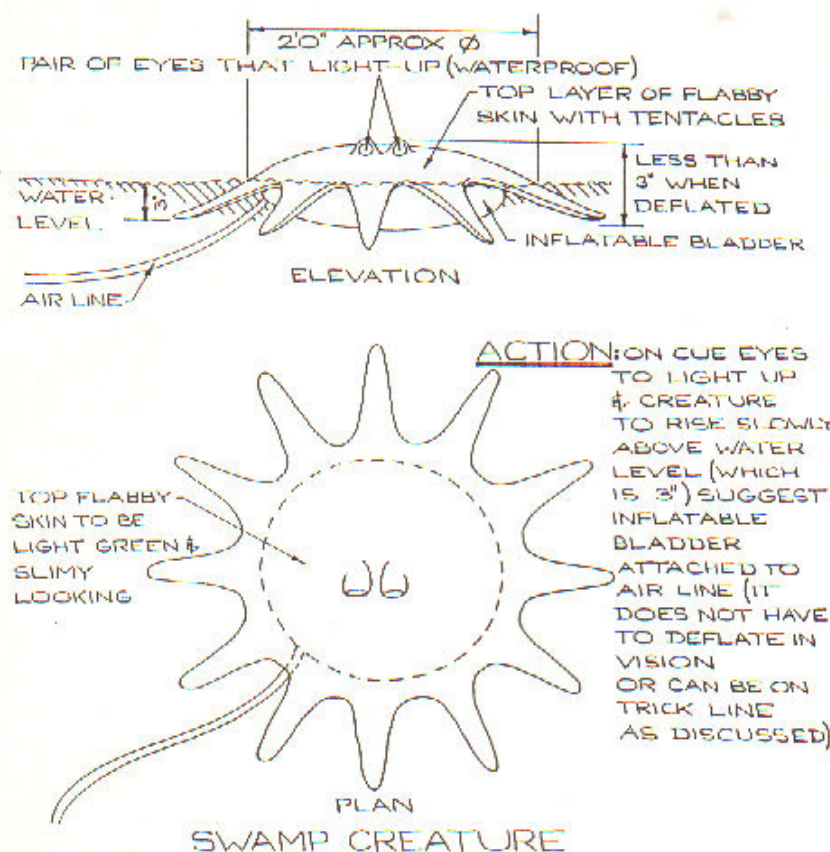 2'0" APPROX Ø
PAIR OF EYES THAT LIGHT-UP (WATERPROOF)
TOP LAYER OF FLABBY
SKIN WITH TENTACLES
LESS THAN
3" WHEN
DEFLATED
WATER
LEVEL
3"
INFLATABLE BLADDER
AIR LINE
ELEVATION
ACTION: ON CUE EYES
TO LIGHT UP
& CREATURE
TO RISE SLOWLY
ABOVE WATER
LEVEL (WHICH
IS 3") SUGGEST
INFLATABLE
BLADDER
ATTACHED TO
AIR LINE (IT
DOES NOT HAVE
TO DEFLATE IN
VISION
OR CAN BE ON
TRICK LINE
AS DISCUSSED)
TOP FLABBY
SKIN TO BE
LIGHT GREEN &
SLIMY
LOOKING
PLAN
SWAMP CREATURE